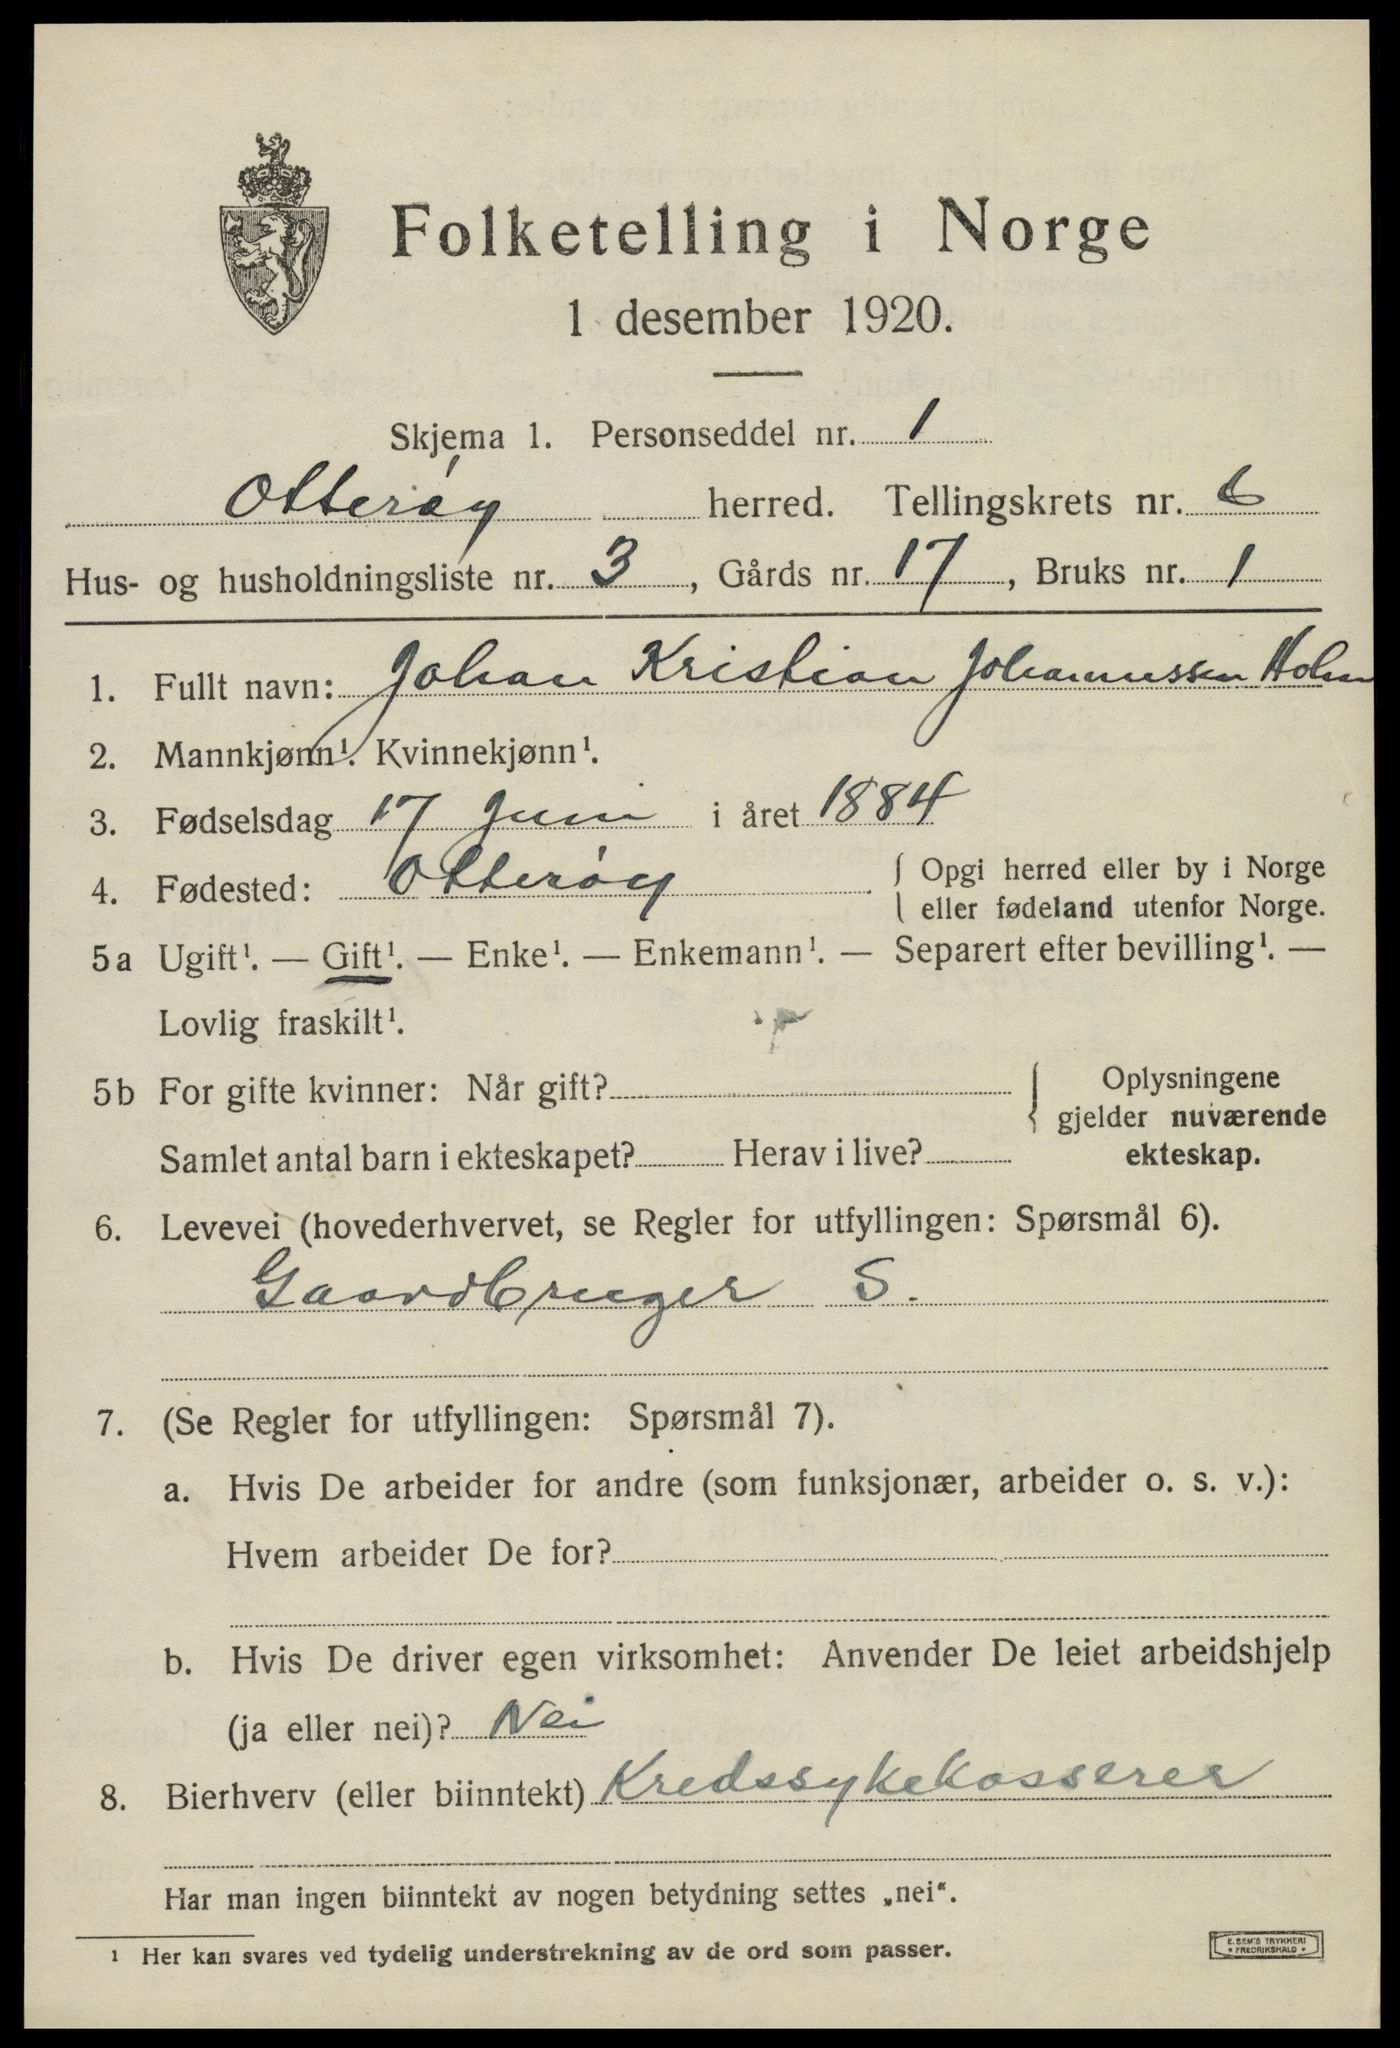 Folketelling i Norge
1 desember 1920.
Skjema 1. Personseddel nr. 1
Otterøy herred. Tellingskrets nr. 6
Hus- og husholdningsliste nr. 3, Gårds nr. 17, Bruks nr. 1
1. Fullt navn: Johan Kristian Johannessen Holm
2. Mannkjønn¹. Kvinnekjønn¹.
3. Fødselsdag 17 Juni i året 1884
4. Fødested: Otterøy { Opgi herred eller by i Norge
eller fødeland utenfor Norge.
5a Ugift¹. — Gift¹. — Enke¹. — Enkemann¹. — Separert efter bevilling¹. —
Lovlig fraskilt¹.
5b For gifte kvinner: Når gift? { Oplysningene
gjelder nuværende
Samlet antal barn i ekteskapet? Herav i live? ekteskap.
6. Levevei (hovederhvervet, se Regler for utfyllingen: Spørsmål 6).
Gaardbruger S.
7. (Se Regler for utfyllingen: Spørsmål 7).
a. Hvis De arbeider for andre (som funksjonær, arbeider o. s. v.):
Hvem arbeider De for?
b. Hvis De driver egen virksomhet: Anvender De leiet arbeidshjelp
(ja eller nei)? Nei
8. Bierhverv (eller biinntekt) Kredssykekasserer
Har man ingen biinntekt av nogen betydning settes „nei“.
¹ Her kan svares ved tydelig understrekning av de ord som passer.
E. SEM'S TRYKKERI
• FREDRIKSHALD •